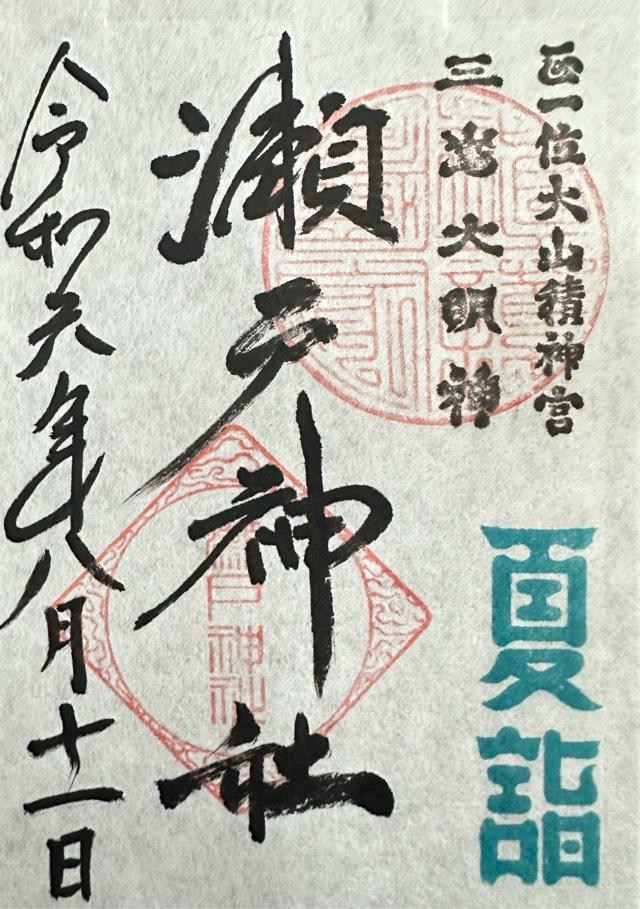 正一位大山積神宮
三嶌大明神
夏詣
瀬戸神社
令和六年八月十一日